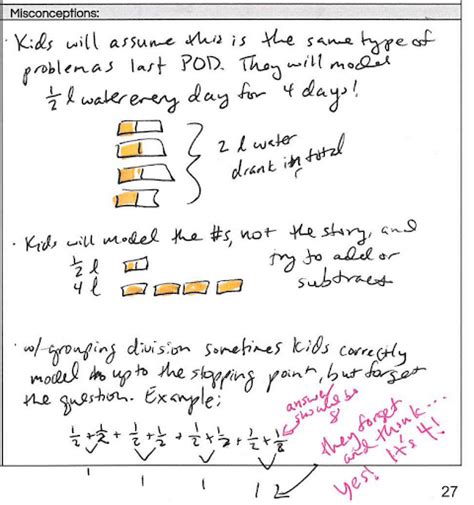 Misconceptions:
· Kids will assume this is the same type of
problem as last POD. They will model
1/2 l water every day for 4 days!
2 l water
drank in total
· Kids will model the #s, not the story, and
1/2 l
try to add or
4 l
subtract
· w/ grouping division sometimes kids correctly
model up to the stopping point, but forget
the question. Example:
answer
should be
8
1/2 + 1/2 + 1/2 + 1/2 + 1/2 + 1/2 + 1/2 + 1/8
1 1 1 1
they forget
and think...
Yes! It's 4!
27